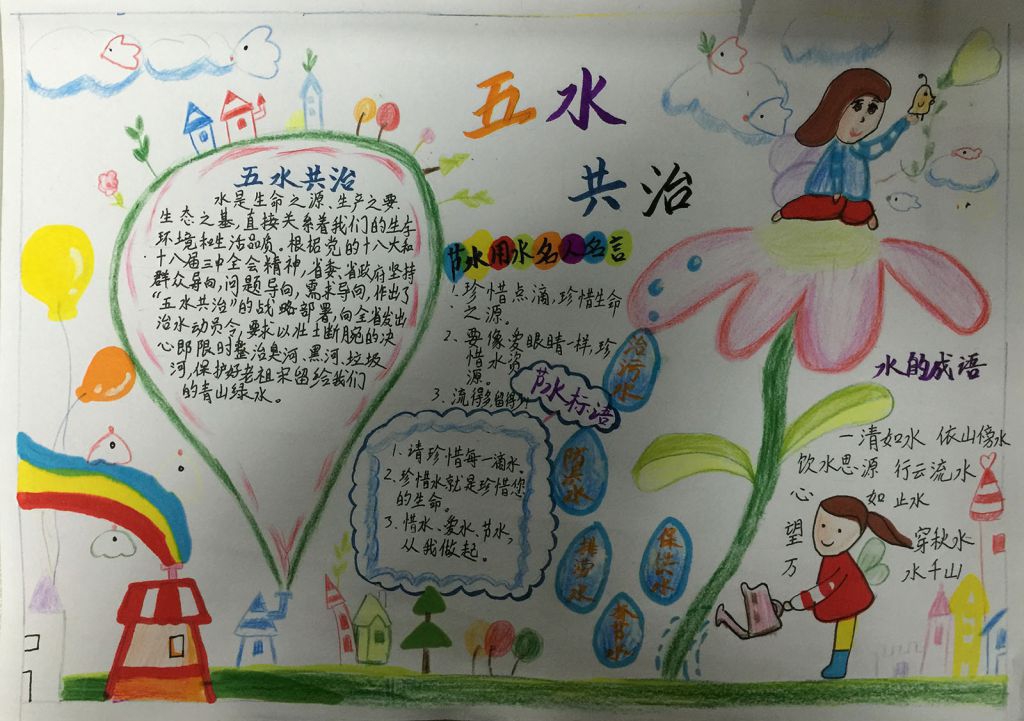 五水
共治
五水共治
水是生命之源、生产之要
生态之基,直接关系着我们的生存
环境和生活品质。根据党的十八大和
十八届三中全会精神,省委、省政府坚持
群众导向,问题导向,需求导向,作出了
“五水共治”的战略部署,向全省发出
治水动员令,要求以壮士断腕的决
心即限时整治臭河、黑河、垃圾
河,保护好老祖宗留给我们
的青山绿水。
节水用水名人名言
1.珍惜点滴,珍惜生命
之源。
2.要像爱眼睛一样,珍
惜水资
源。
3.流得多,留得
节水标语
1.请珍惜每一滴水。
2.珍惜水就是珍惜您
的生命。
3.惜水、爱水、节水,
从我做起。
治污水
防洪水
排涝水
保供水
抓节水
水的成语
一清如水 依山傍水
饮水思源 行云流水
心如止水
望穿秋水
万水千山